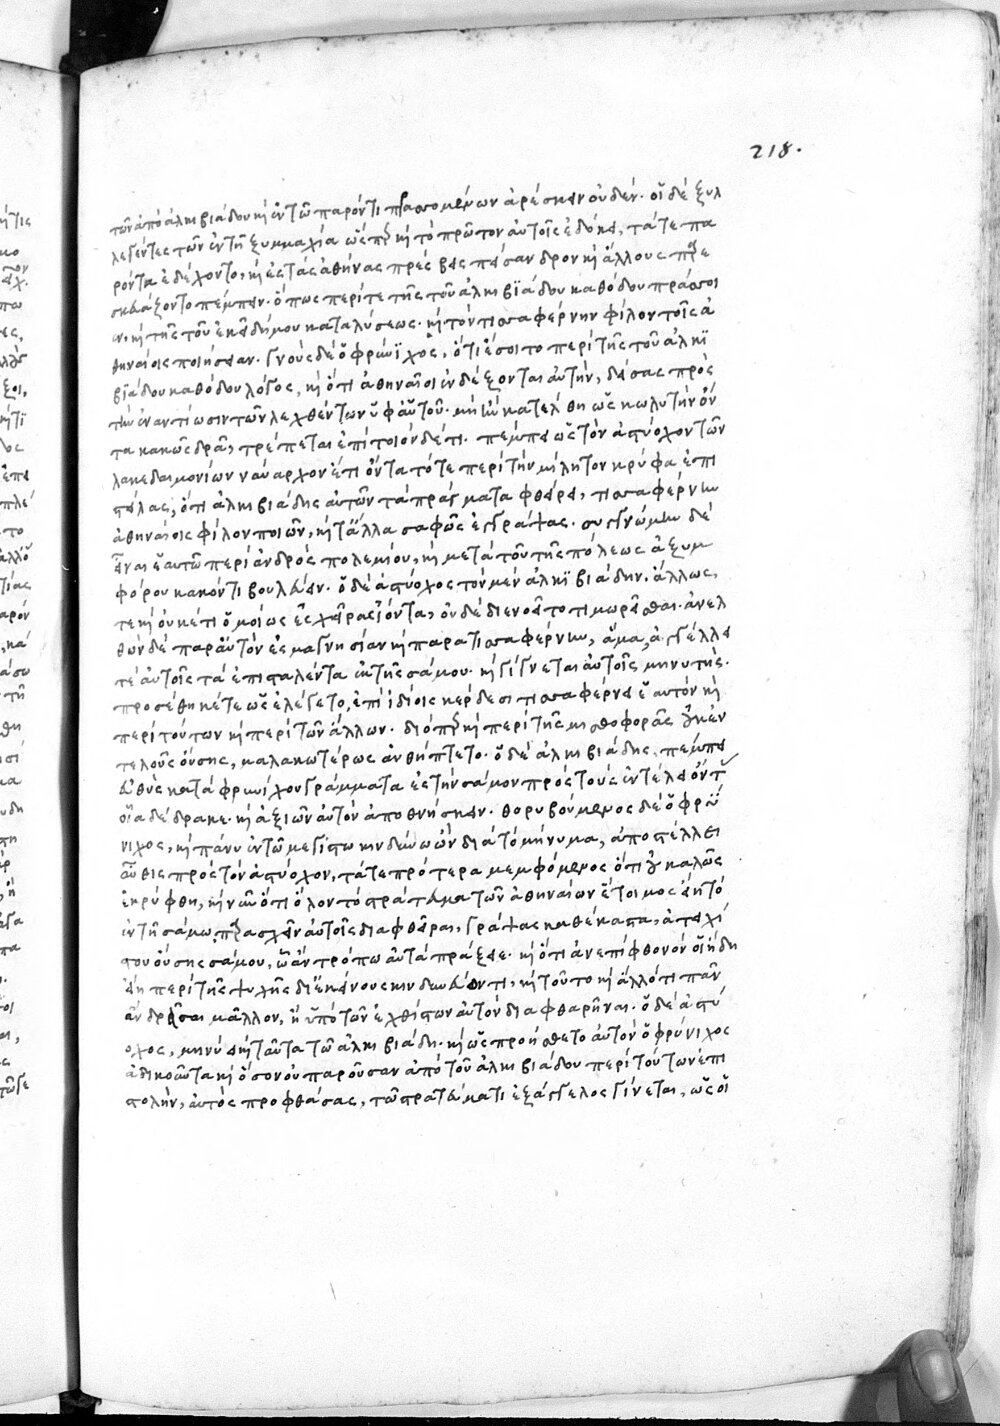 218.
τῶν ἀπὸ ἀλκιβιάδου καὶ ἐν τῶ παρόντι πρασσομένων ἀρέσκειν οὐδέν. οἱ δὲ ξυλ
λεγέντες τῶν ἐν τῆ ξυμμαχία ὥσπερ καὶ τὸ πρῶτον αὐτοῖς ἐδόκει, τά τε πα
ρόντα ἐδέχοντο, καὶ ἐς τὰς ἀθήνας πρέσβεις πείσανδρον καὶ ἄλλους παρε
σκευάζοντο πέμπειν. ὅπως περί τε τῆς τοῦ ἀλκιβιάδου καθόδου πράσσοι
εν, καὶ τῆς τοῦ ἐκεῖ δήμου καταλύσεως. καὶ τὸν τισσαφέρνην φίλον τοῖς ἀ
θηναίοις ποιήσειαν. γνοὺς δὲ ὁ φρύνιχος, ὅτι ἔσοιτο περὶ τῆς τοῦ ἀλκι
βιάδου καθόδου λόγος, καὶ ὅτι ἀθηναῖοι ἐνδέξονται αὐτὴν, δείσας πρὸς
τὴν ἐναντίωσιν τῶν λεχθέντων ὑφ' αὑτοῦ. μὴ ἢν κατέλθη ὡς κωλυτὴν ὄν
τα κακῶς δρᾶ, τρέπεται ἐπὶ τοιόνδέ τι. πέμπει ὡς τὸν ἀστύοχον τῶν
λακεδαιμονίων ναύαρχον ἔτι ὄντα τότε περὶ τὴν μίλητον κρύφα ἐπι
στείλας, ὅτι ἀλκιβιάδης αὐτῶν τὰ πράγματα φθείρει, τισσαφέρνην
ἀθηναίοις φίλον ποιῶν, καὶ τἄλλα σαφῶς ἐγγράψας. συγγνώμην δὲ
εἶναι ἑαυτῶ περὶ ἀνδρὸς πολεμίου, καὶ μετὰ τοῦ τῆς πόλεως ἀξυμ
φόρου κακόν τι βουλεύειν. ὁ δὲ ἀστύοχος τὸν μὲν ἀλκιβιάδην, ἄλλως
τε καὶ οὐκέτι ὁμοίως ἐς χεῖρας ἰόντα, οὐδὲ διενοεῖτο τιμωρεῖσθαι. ἀνελ
θὼν δὲ παρ' αὐτὸν ἐς μαγνησίαν καὶ παρὰ τισσαφέρνην, ἅμα, ἀγγέλλει
τε αὐτοῖς τὰ ἐπισταλέντα ἐκ τῆς σάμου. καὶ γίγνεται αὐτοῖς μηνυτής.
προσέθηκέ τε ὡς ἐλέγετο, ἐπὶ ἰδίοις κέρδεσι τισσαφέρνει ἑαυτὸν καὶ
περὶ τούτων καὶ περὶ τῶν ἄλλων. διόπερ καὶ περὶ τῆς μισθοφορᾶς οὐκ ἐν
τελοῦς οὔσης, μαλακωτέρως ἀνθήπτετο. ὁ δὲ ἀλκιβιάδης πέμπει
εὐθὺς κατὰ φρυνίχου γράμματα ἐς τὴν σάμον πρὸς τοὺς ἐν τέλει ὄντας
οἷα δέδρακε. καὶ ἀξιῶν αὐτὸν ἀποθνήσκειν. θορυβούμενος δὲ ὁ φρύ
νιχος, καὶ πάνυ ἐν τῶ μεγίστω κινδύνω ὢν διὰ τὸ μήνυμα, ἀποστέλλει
αὖθις πρὸς τὸν ἀστύοχον, τά τε πρότερα μεμφόμενος ὅτι οὐ καλῶς
ἐκρύφθη, καὶ νῦν ὅτι ὅλον τὸ στράτευμα τῶν ἀθηναίων ἕτοιμος εἴη τὸ
ἐν τῆ σάμω παρασχεῖν αὐτοῖς διαφθεῖραι, γράψας καθέκαστα, ἀτειχί
στου οὔσης σάμου, ὧ ἂν τρόπω αὐτὰ πράξειε. καὶ ὅτι ἀνεπίφθονόν οἱ ἤδη
εἴη περὶ τῆς ψυχῆς δι' ἐκείνους κινδυνεύοντι, καὶ τοῦτο καὶ ἄλλό τι πᾶν
ἂν δρᾶσαι μᾶλλον, ἢ ὑπὸ τῶν ἐχθίστων αὐτὸν διαφθαρῆναι. ὁ δὲ ἀστύ
οχος, μηνύει καὶ ταῦτα τῶ ἀλκιβιάδη. καὶ ὡς προήσθετο αὐτὸν ὁ φρύνιχος
ἀδικοῦντα καὶ ὅσον οὐ παροῦσαν ἀπὸ τοῦ ἀλκιβιάδου περὶ τούτων ἐπι
στολὴν, αὐτὸς προφθάσας, τῶ στρατεύματι ἐξάγγελος γίνεται, ὡς οἱ